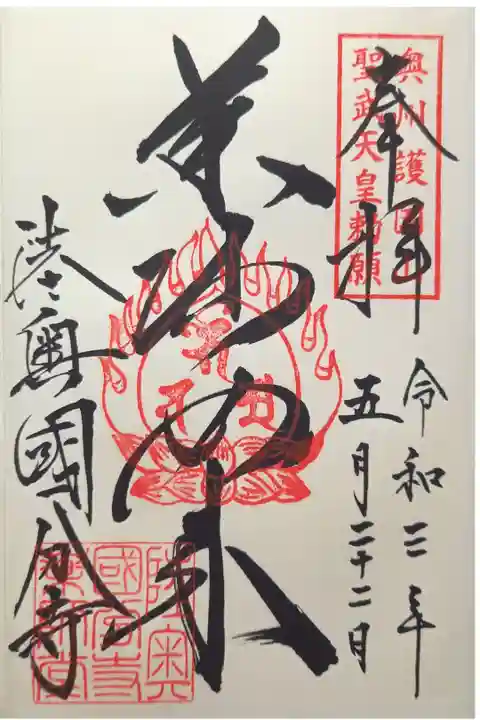 奉拝
奥州護国
聖武天皇勅願
令和三年
五月二十二日
薬師如来
陸奥國分寺
陸奥
國分寺
薬師堂